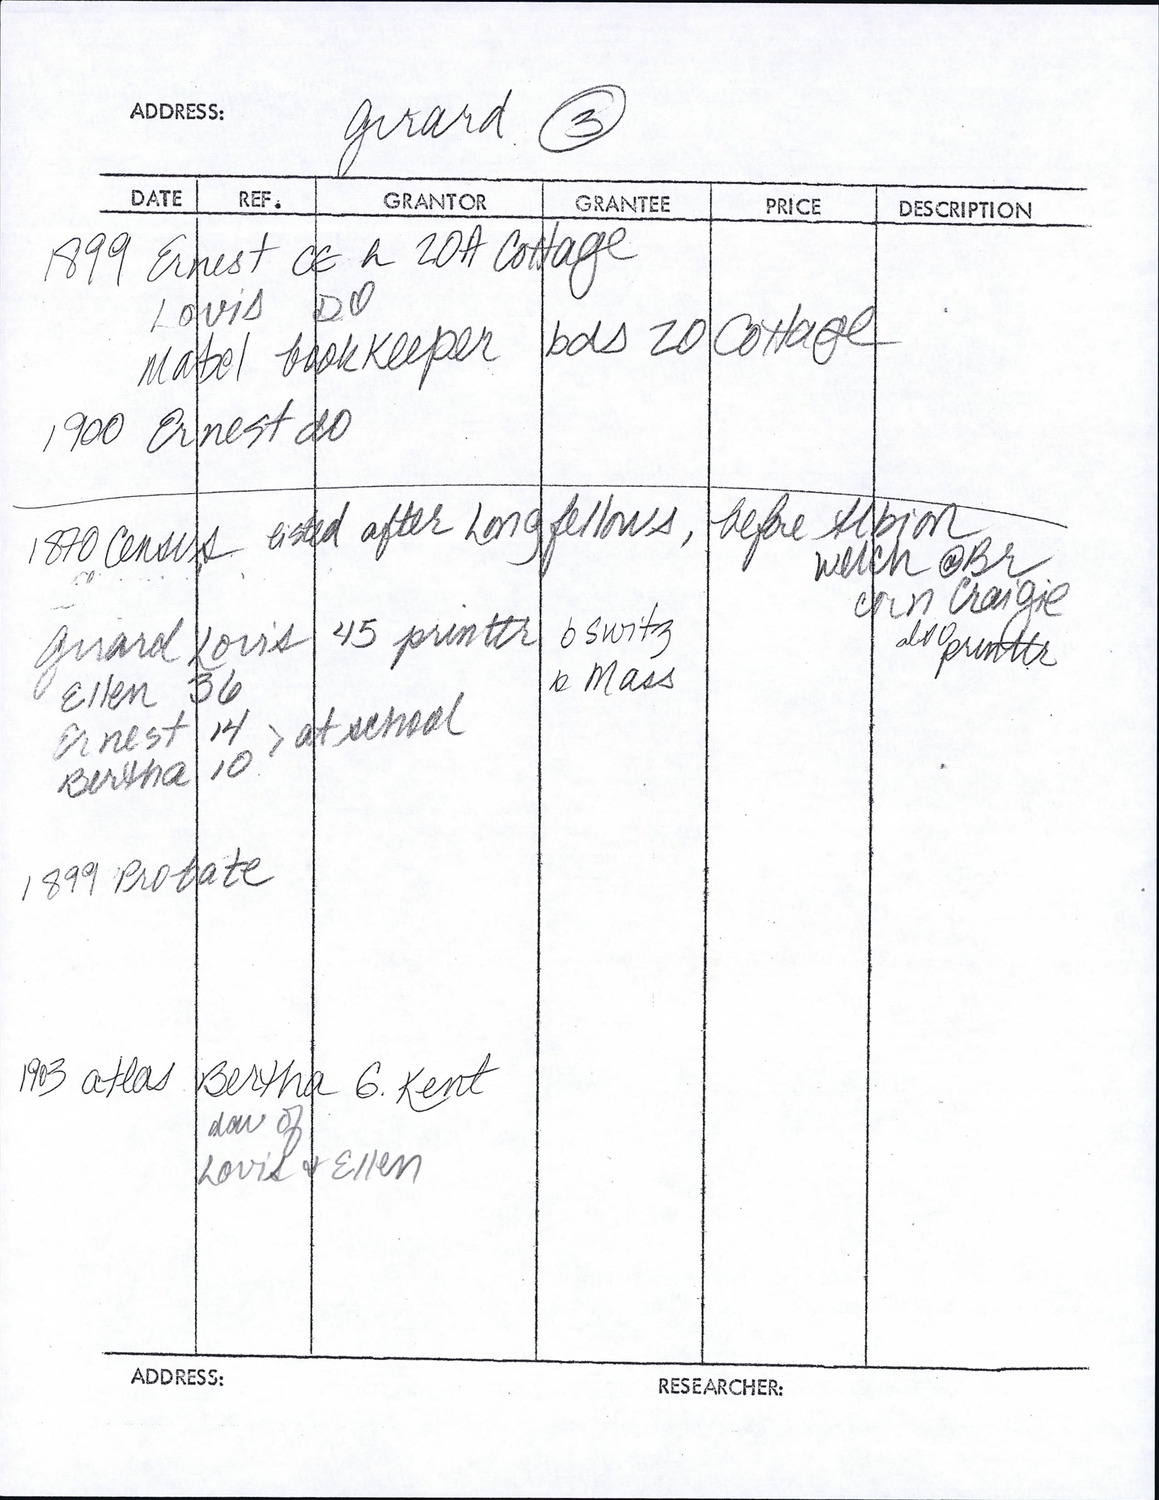 ADDRESS: Girard 3
DATE REF. GRANTOR GRANTEE PRICE DESCRIPTION
1899 Ernest CE h 20A Cottage
Louis DO
Mabel bookkeeper bds 20 Cottage
1900 Ernest do
1870 Census listed after Longfellows, before Albion
Welch @ Br
corn Craigie
also printer
Girard Louis 45 printer b Switz
Ellen 36 b Mass
Ernest 14 > at school
Bertha 10
1899 Probate
1903 atlas Bertha G. Kent
dau of
Louis & Ellen
ADDRESS:
RESEARCHER: